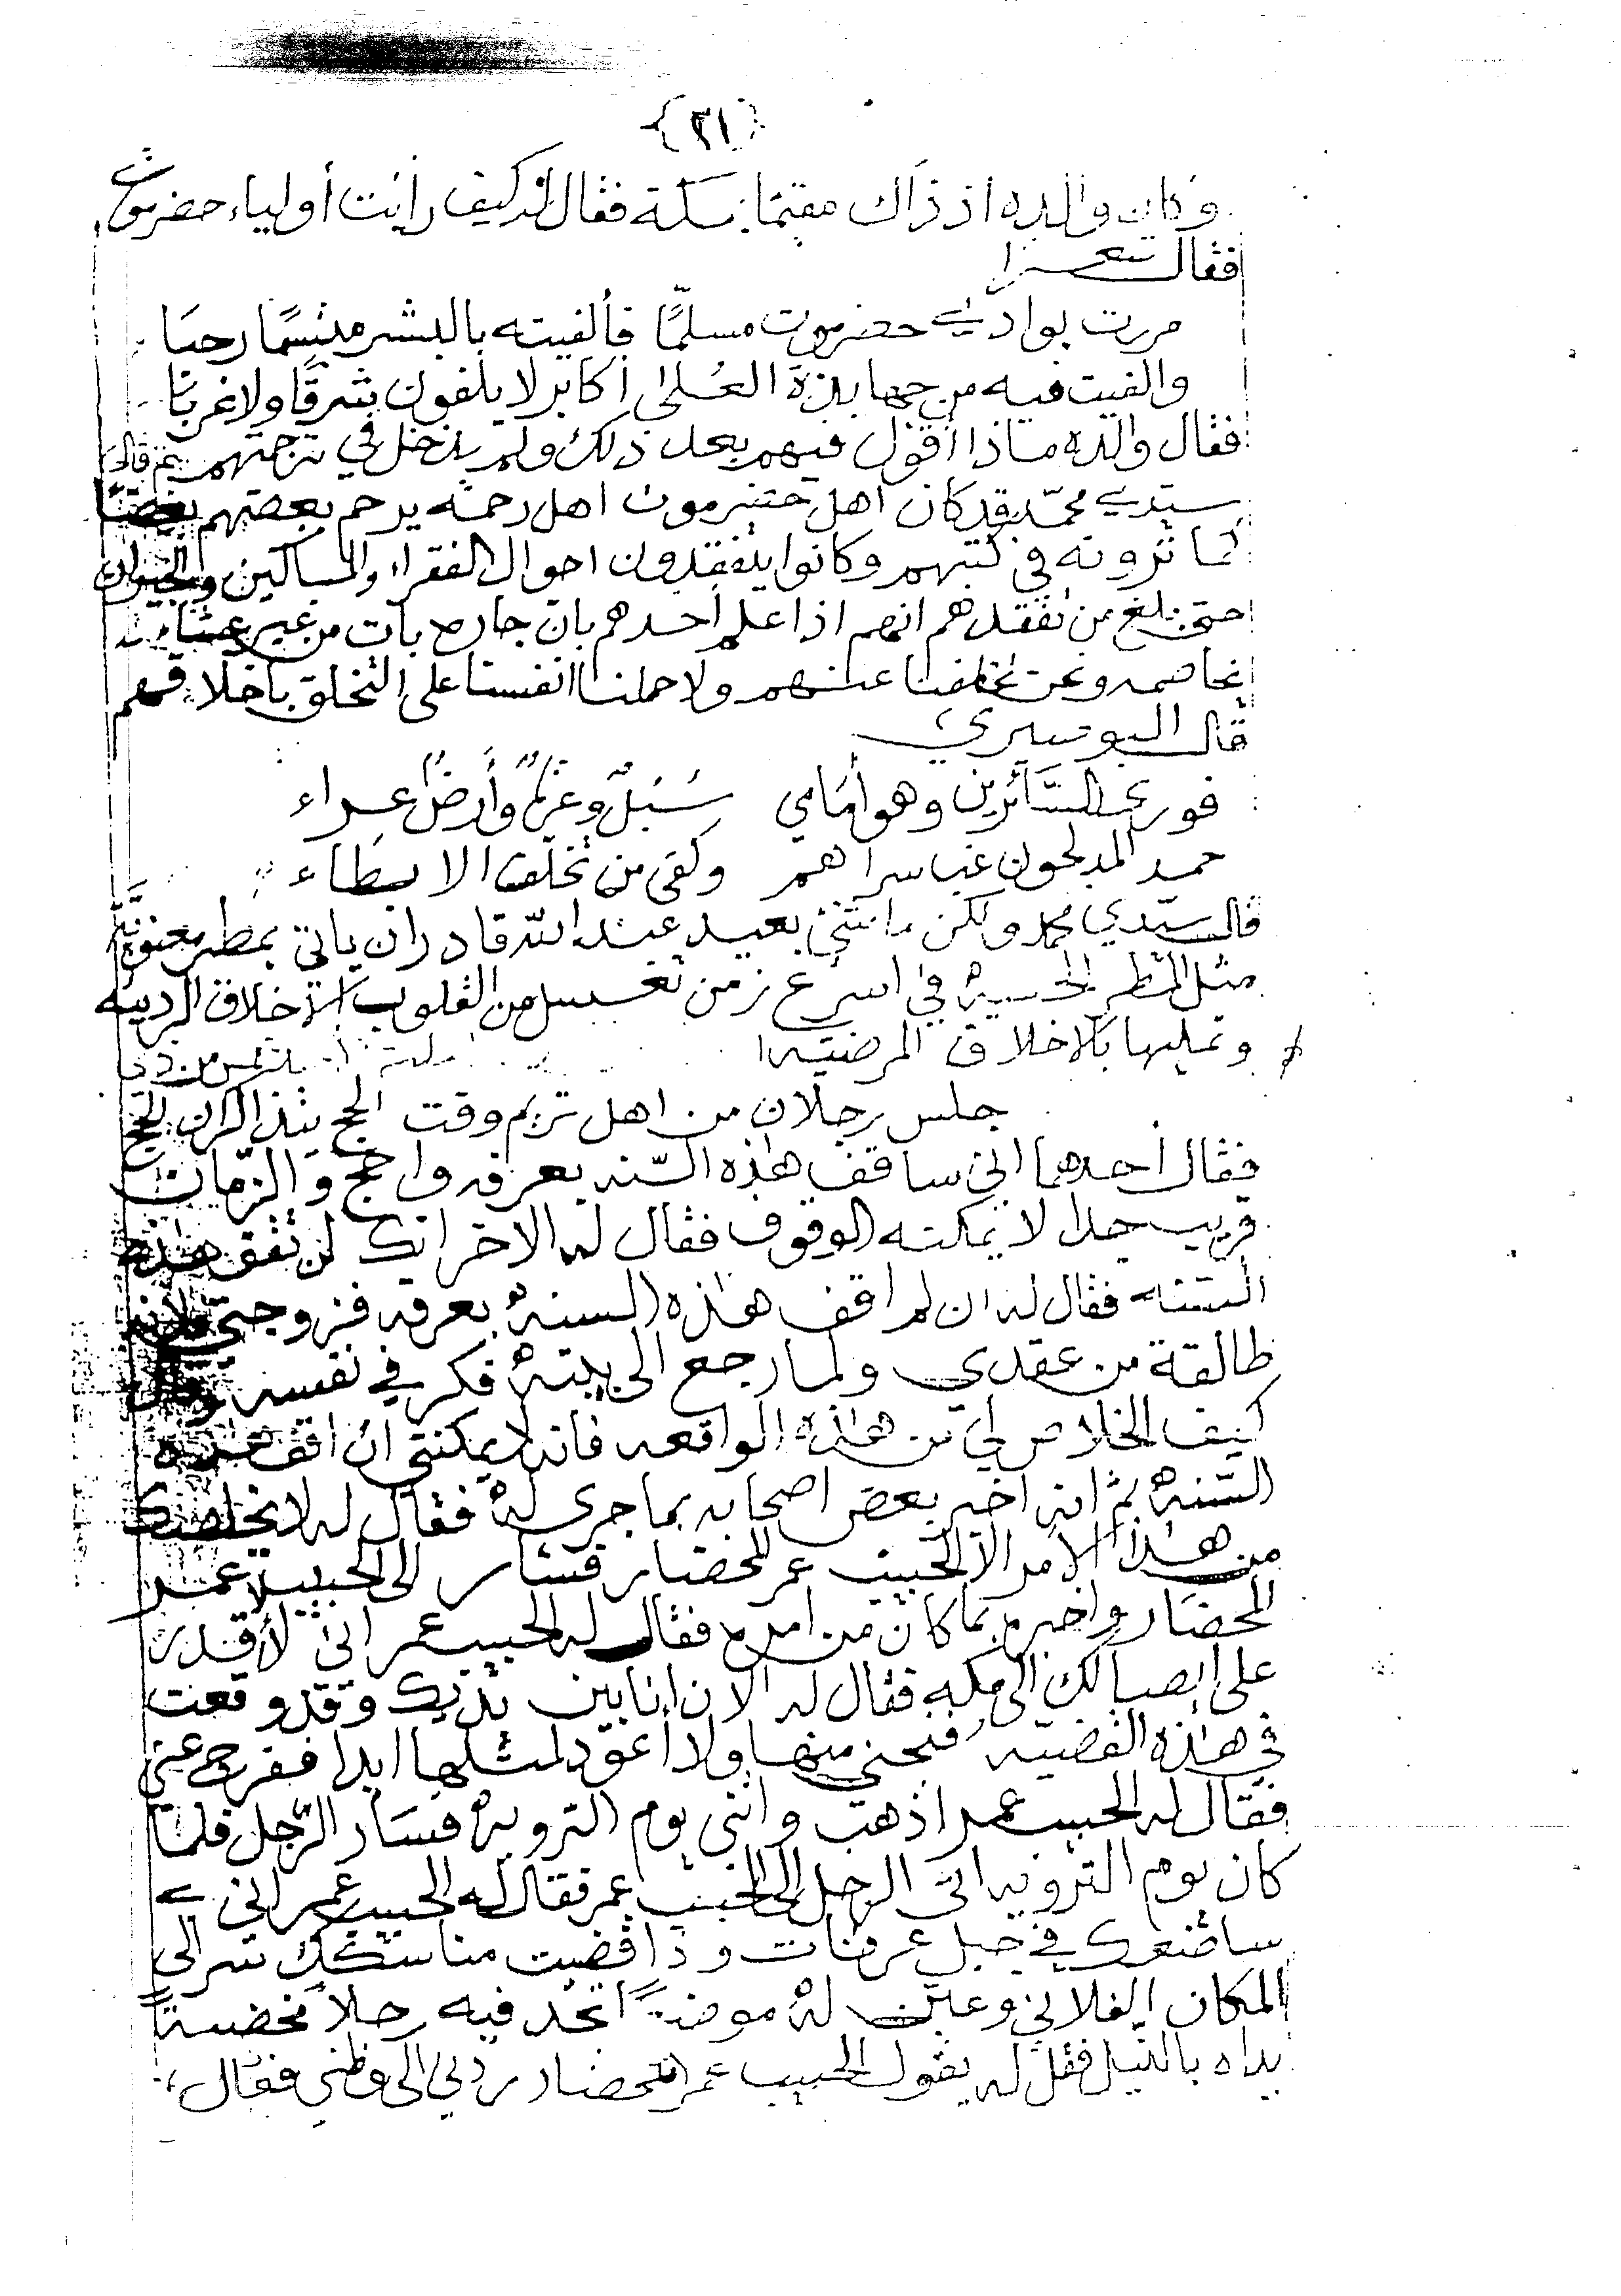 {٢١}
وكان والده اذ ذاك مقيمًا بمكة فقال له كيف رأيت أولياء حضرموت
فقال شعرا
مررت بوادي حضرموت مسلمًّا فألفيته بالبشر مبتسمًا رحبَا
والفيت فيه من جهابذة العُلى أكابر لا يلفون شرقًا ولا غربًا
فقال والده ماذا أقول فيهم بعد ذلك ولم يدخل في ترجمتهم ثم قال
سيدي محمد قد كان اهل حضرموت اهل رحمه يرحم بعضهم بعضًا
كما ترونه في كتبهم وكانوا يتفقدون احوال الفقراء والمساكين والجيران
حتى بلغ من تفقدهم انهم اذا علم أحدهم بان جاره بات من غير عشاء
يخاصمه ونحن تخلفنا عنهم ولا حملنا انفسنا على التخلق باخلاقهم
قال البوصيري
فورى السَّائرين وهو أمَامي سُبُلٌ وعْرٌ وأرضٌ عراء
حمد المدلجون غب سراهم وكفى من تخلف الابطاء
قال سيّدي محمد ولكن ما شئ بعيد عند الله قادر ان ياتي بمطر معنويّة
مثل المطر الحسيه في اسرع زمن تغسل من القلوب الاخلاق الرديه
وتمليها بالاخلاق المرضيّه
جلس رجلان من اهل تريم وقت الحج يتذاكران الحج
فقال أحدهما اني ساقف هذه السّنه بعرفه واحج والزمان
قريب جدا لا يمكنه الوقوف فقال له الاخر انك لن تقف هذه
السنه فقال له ان لم اقف هذه السنه بعرفه فزوجتي فلانه
طالقة من عقدي ولما رجع الى بيته فكر في نفسه وقال
كيف الخلاص لي من هذه الواقعه فانه لا يمكنني ان اقف هذه
السّنه ثم انه اخبر بعض اصحابه بما جرى له فقال له لا يخلصك
من هذا الامر الا الحبيب عمر المحضار فسار الى الحبيب عمر
المحضار واخبره بما كان من امره فقال له الحبيب عمر اني لأقدر
على ايصالك الى مكه فقال له الان انا بين يديك وقد وقعت
في هذه القضيّه فنجني منها ولا أعود لمثلها ابدا ففرج عني
فقال له الحبيب عمر اذهب واتني يوم الترويه فسار الرّجل فلما
كان يوم الترويه اتى الرجل الى الحبيب عمر فقال له الحبيب عمر اني
ساضعك في جبل عرفات واذا قضيت مناسكك سر الى
المكان الفلاني وعيّن له موضعًا تجد فيه رجلا مخضبةً
يداه بالنّيل فقل له يقول الحبيب عمر المحضار ردني الى وطني فقال